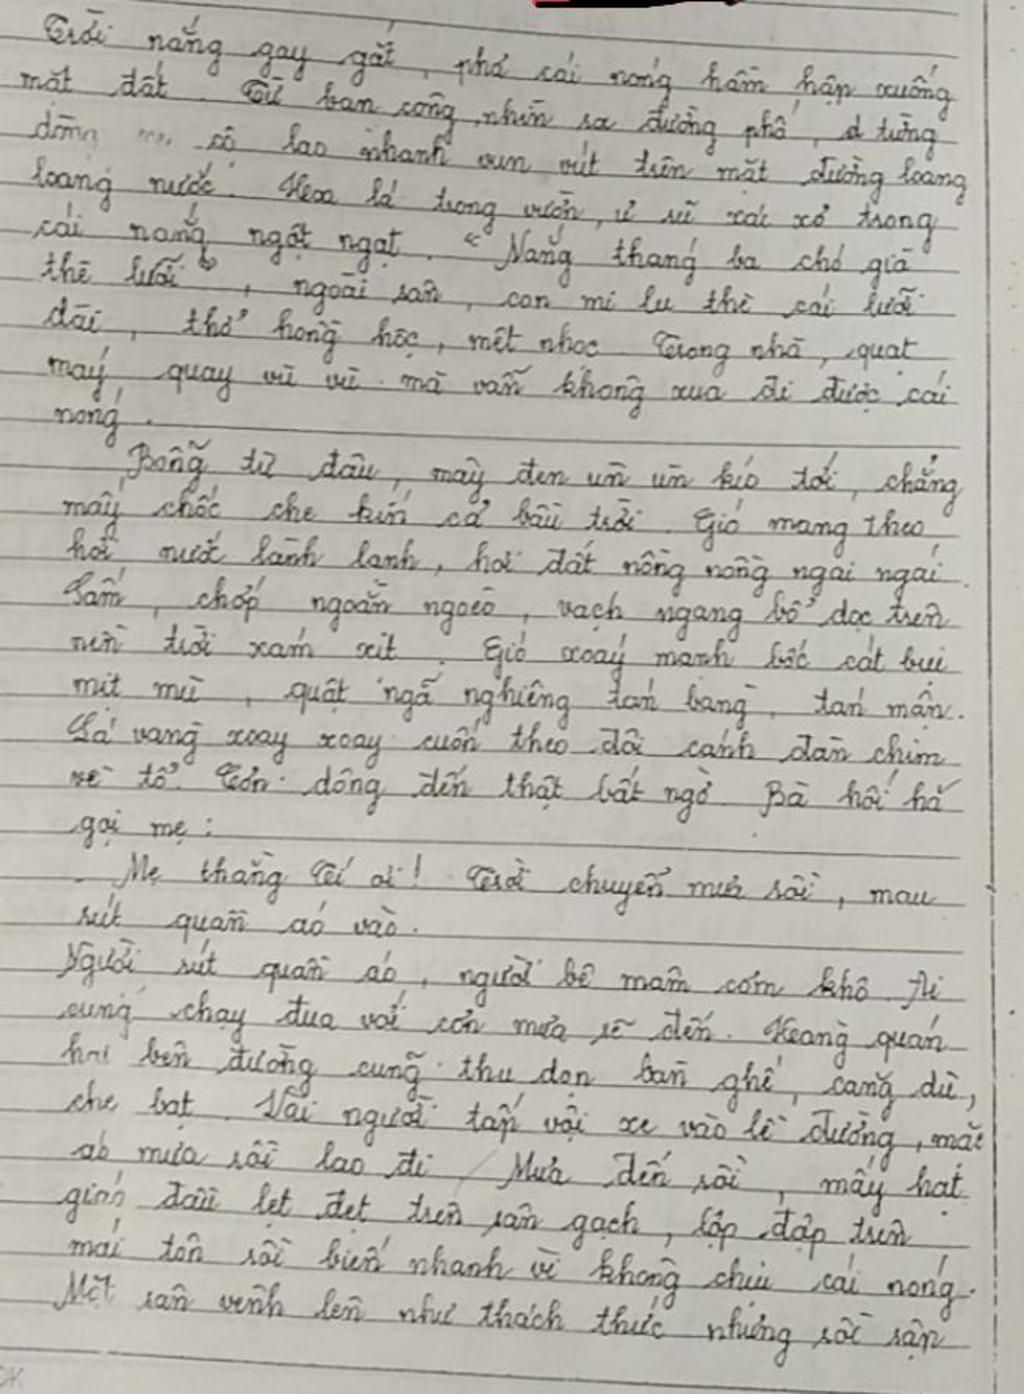 Trời nắng gay gắt, phả cái nóng hầm hập xuống
mặt đất. Từ ban công, nhìn ra đường phố, ở từng
dòng xe cộ lao nhanh vun vút trên mặt đường loang
loang nước. Hoa lá trong vườn, ủ rũ xác xơ trong
cái nắng ngột ngạt. "Nắng tháng ba chó già
thè lưỡi", ngoài sân, con mi lu thè cái lưỡi
dài, thở hồng hộc, mệt nhọc. Trong nhà, quạt
máy quay vù vù mà vẫn không xua đi được cái
nóng.
Bỗng từ đâu, mây đen ùn ùn kéo tới, chẳng
mấy chốc che kín cả bầu trời. Gió mang theo
hơi nước lành lạnh, hơi đất nồng nồng ngai ngái.
Sấm, chớp ngoằn ngoèo, vạch ngang bổ dọc trên
nền trời xám xịt. Gió xoáy mạnh bốc cát bụi
mịt mù, quật ngã nghiêng tán bàng, tán mận.
Lá vàng xoay xoay cuốn theo đôi cánh đàn chim
về tổ. Cơn dông đến thật bất ngờ. Bà hối hả
gọi mẹ:
- Mẹ thằng Tí ơi! Trời chuyển mưa rồi, mau
rút quần áo vào.
Người rút quần áo, người bê mâm cơm khô. Ai
cũng chạy đua với cơn mưa sẽ đến. Hàng quán
hai bên đường cũng thu dọn bàn ghế, căng dù,
che bạt. Vài người tấp vội xe vào lề đường, mặc
áo mưa rồi lao đi. Mưa đến rồi, mấy hạt
giáo đầu lẹt đẹt trên sân gạch, lộp độp trên
mái tôn rồi biến nhanh vì không chịu cái nóng.
Mặt sân vênh lên như thách thức nhưng rồi sậm